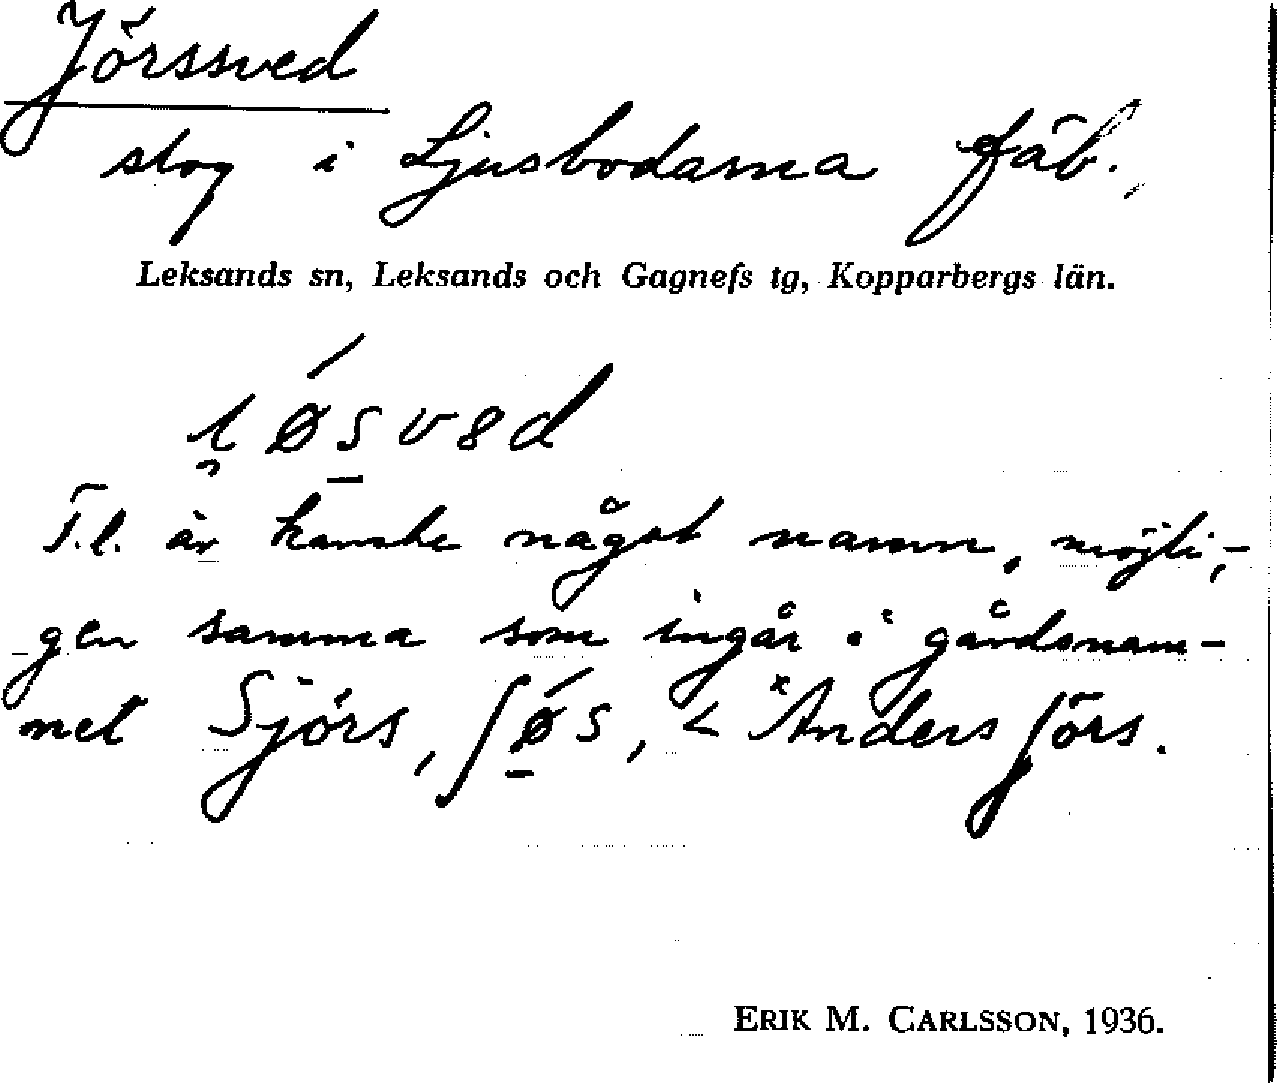 Jörssved
slog i Ljusbodarna fäb.
Leksands sn, Leksands och Gagnefs tg, Kopparbergs län.
F.l. är kanske något namn, möjli-
gen samma som ingår i gårdsnam-
net Sjörs, ʃøs, < *Anders Jörs.
ERIK M. CARLSSON, 1936.